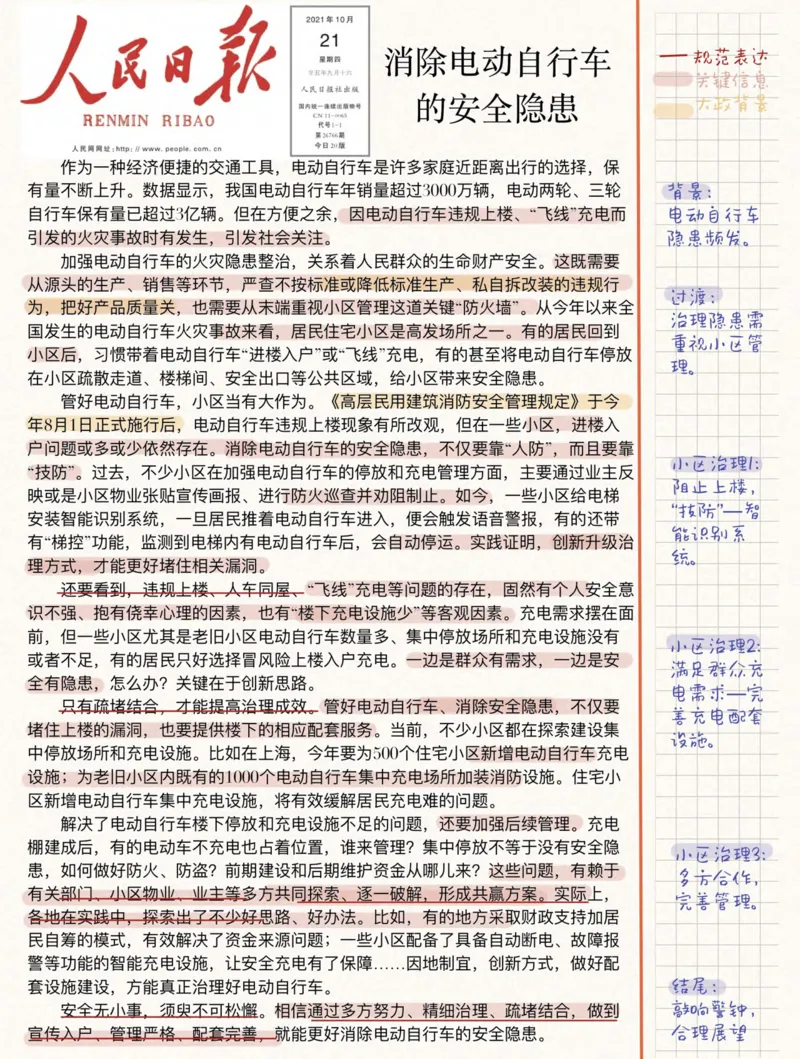 人民日报
RENMIN RIBAO
人民网网址:http://www.people.com.cn
2021年10月
21
星期四
辛丑年九月十六
人民日报社出版
国内统一连续出版物号
CN 11-0065
代号1-1
第26766期
今日20版
消除电动自行车
的安全隐患
作为一种经济便捷的交通工具，电动自行车是许多家庭近距离出行的选择，保
有量不断上升。数据显示，我国电动自行车年销量超过3000万辆，电动两轮、三轮
自行车保有量已超过3亿辆。但在方便之余，因电动自行车违规上楼、“飞线”充电而
引发的火灾事故时有发生，引发社会关注。
加强电动自行车的火灾隐患整治，关系着人民群众的生命财产安全。这既需要
从源头的生产、销售等环节，严查不按标准或降低标准生产、私自拆改装的违规行
为，把好产品质量关，也需要从末端重视小区管理这道关键“防火墙”。从今年以来全
国发生的电动自行车火灾事故来看，居民住宅小区是高发场所之一。有的居民回到
小区后，习惯带着电动自行车“进楼入户”或“飞线”充电，有的甚至将电动自行车停放
在小区疏散走道、楼梯间、安全出口等公共区域，给小区带来安全隐患。
管好电动自行车，小区当有大作为。《高层民用建筑消防安全管理规定》于今
年8月1日正式施行后，电动自行车违规上楼现象有所改观，但在一些小区，进楼入
户问题或多或少依然存在。消除电动自行车的安全隐患，不仅要靠“人防”，而且要靠
“技防”。过去，不少小区在加强电动自行车的停放和充电管理方面，主要通过业主反
映或是小区物业张贴宣传画报、进行防火巡查并劝阻制止。如今，一些小区给电梯
安装智能识别系统，一旦居民推着电动自行车进入，便会触发语音警报，有的还带
有“梯控”功能，监测到电梯内有电动自行车后，会自动停运。实践证明，创新升级治
理方式，才能更好堵住相关漏洞。
还要看到，违规上楼、人车同屋、“飞线”充电等问题的存在，固然有个人安全意
识不强、抱有侥幸心理的因素，也有“楼下充电设施少”等客观因素。充电需求摆在面
前，但一些小区尤其是老旧小区电动自行车数量多、集中停放场所和充电设施没有
或者不足，有的居民只好选择冒风险上楼入户充电。一边是群众有需求，一边是安
全有隐患，怎么办？关键在于创新思路。
只有疏堵结合，才能提高治理成效。管好电动自行车、消除安全隐患，不仅要
堵住上楼的漏洞，也要提供楼下的相应配套服务。当前，不少小区都在探索建设集
中停放场所和充电设施。比如在上海，今年要为500个住宅小区新增电动自行车充电
设施；为老旧小区内既有的1000个电动自行车集中充电场所加装消防设施。住宅小
区新增电动自行车集中充电设施，将有效缓解居民充电难的问题。
解决了电动自行车楼下停放和充电设施不足的问题，还要加强后续管理。充电
棚建成后，有的电动车不充电也占着位置，谁来管理？集中停放不等于没有安全隐
患，如何做好防火、防盗？前期建设和后期维护资金从哪儿来？这些问题，有赖于
有关部门、小区物业、业主等多方共同探索、逐一破解，形成共赢方案。实际上，
各地在实践中，探索出了不少好思路、好办法。比如，有的地方采取财政支持加居
民自筹的模式，有效解决了资金来源问题；一些小区配备了具备自动断电、故障报
警等功能的智能充电设施，让安全充电有了保障……因地制宜，创新方式，做好配
套设施建设，方能真正治理好电动自行车。
安全无小事，须臾不可松懈。相信通过多方努力、精细治理、疏堵结合，做到
宣传入户、管理严格、配套完善，就能更好消除电动自行车的安全隐患。
规范表达
关键信息
大政背景
背景：
电动自行车
隐患频发。
过渡：
治理隐患需
重视小区管
理。
小区治理1：
阻止上楼，
“技防”—智
能识别系
统。
小区治理2：
满足群众充
电需求—完
善充电配套
设施。
小区治理3：
多方合作，
完善管理。
结尾：
敲响警钟，
合理展望